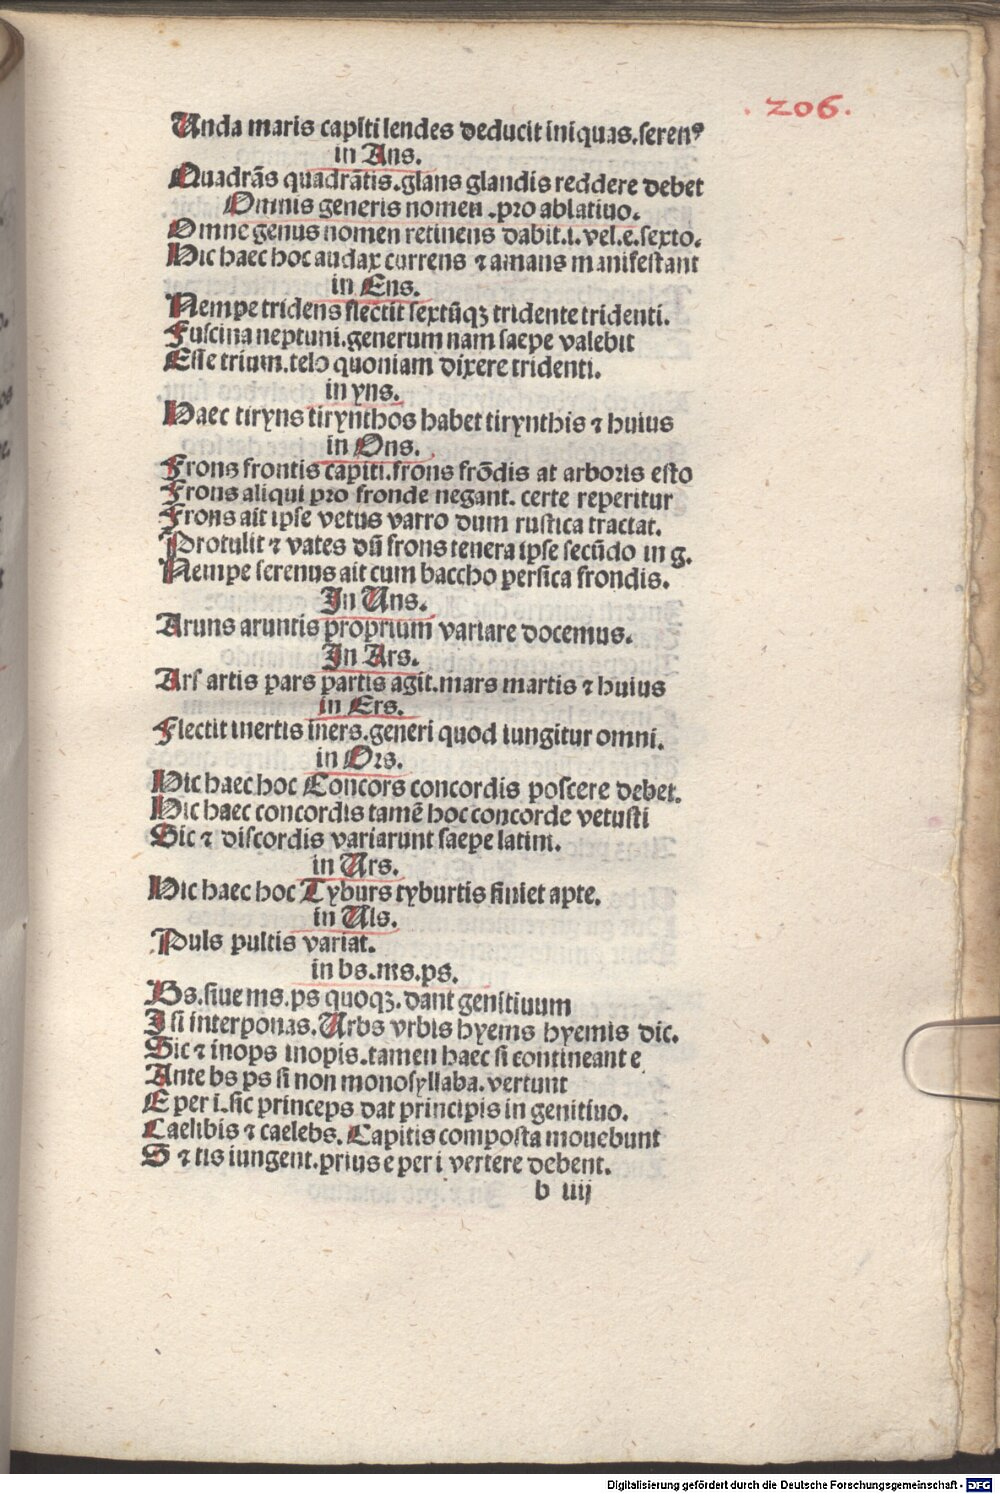 . 206 .
Unda maris capiti lendes deducit iniquas.serenꝰ
in Ans.
Quadrãs quadrãtis.glans glandis reddere debet
Omnis generis nomen .pro ablatiuo.
Omne genus nomen retinens dabit.i.vel.e.sexto.
Hic haec hoc audax currens ⁊ amans manifestant
in Ens.
Nempe tridens flectit sextũqꝫ tridente tridenti.
Fuscina neptuni.generum nam saepe valebit
Esse trium.telo quoniam dixere tridenti.
in yns.
Haec tiryns tirynthos habet tirynthis ⁊ huius
in Ons.
Frons frontis capiti.frons frõdis at arboris esto
Frons aliqui pro fronde negant. certe reperitur
Frons ait ipse vetus varro dum rustica tractat.
Protulit ⁊ vates dũ frons tenera ipse secũdo in g.
Nempe serenus ait cum baccho persica frondis.
In Uns.
Aruns aruntis proprium variare docemus.
In Ars.
Ars artis pars partis agit.mars martis ⁊ huius
in Ers.
Flectit inertis iners.generi quod iungitur omni.
in Ors.
Hic haec hoc Concors concordis poscere debet.
Hic haec concordis tamẽ hoc concorde vetusti
Sic ⁊ discordis variarunt saepe latini.
in Urs.
Hic haec hoc Tyburs tyburtis finiet apte.
in Uls.
Puls pultis variat.
in bs.ms.ps.
Bs.siue ms.ps quoqꝫ.dant genitiuum
I si interponas.Urbs vrbis hyems hyemis dic.
Sic ⁊ inops inopis.tamen haec si contineant e
Ante bs ps si non monosyllaba.vertunt
E per i.sic princeps dat principis in genitiuo.
Caelibis ⁊ caelebs. Capitis composta mouebunt
S ⁊ tis iungent.prius e per i vertere debent.
b iiij
Digitalisierung gefördert durch die Deutsche Forschungsgemeinschaft - DFG